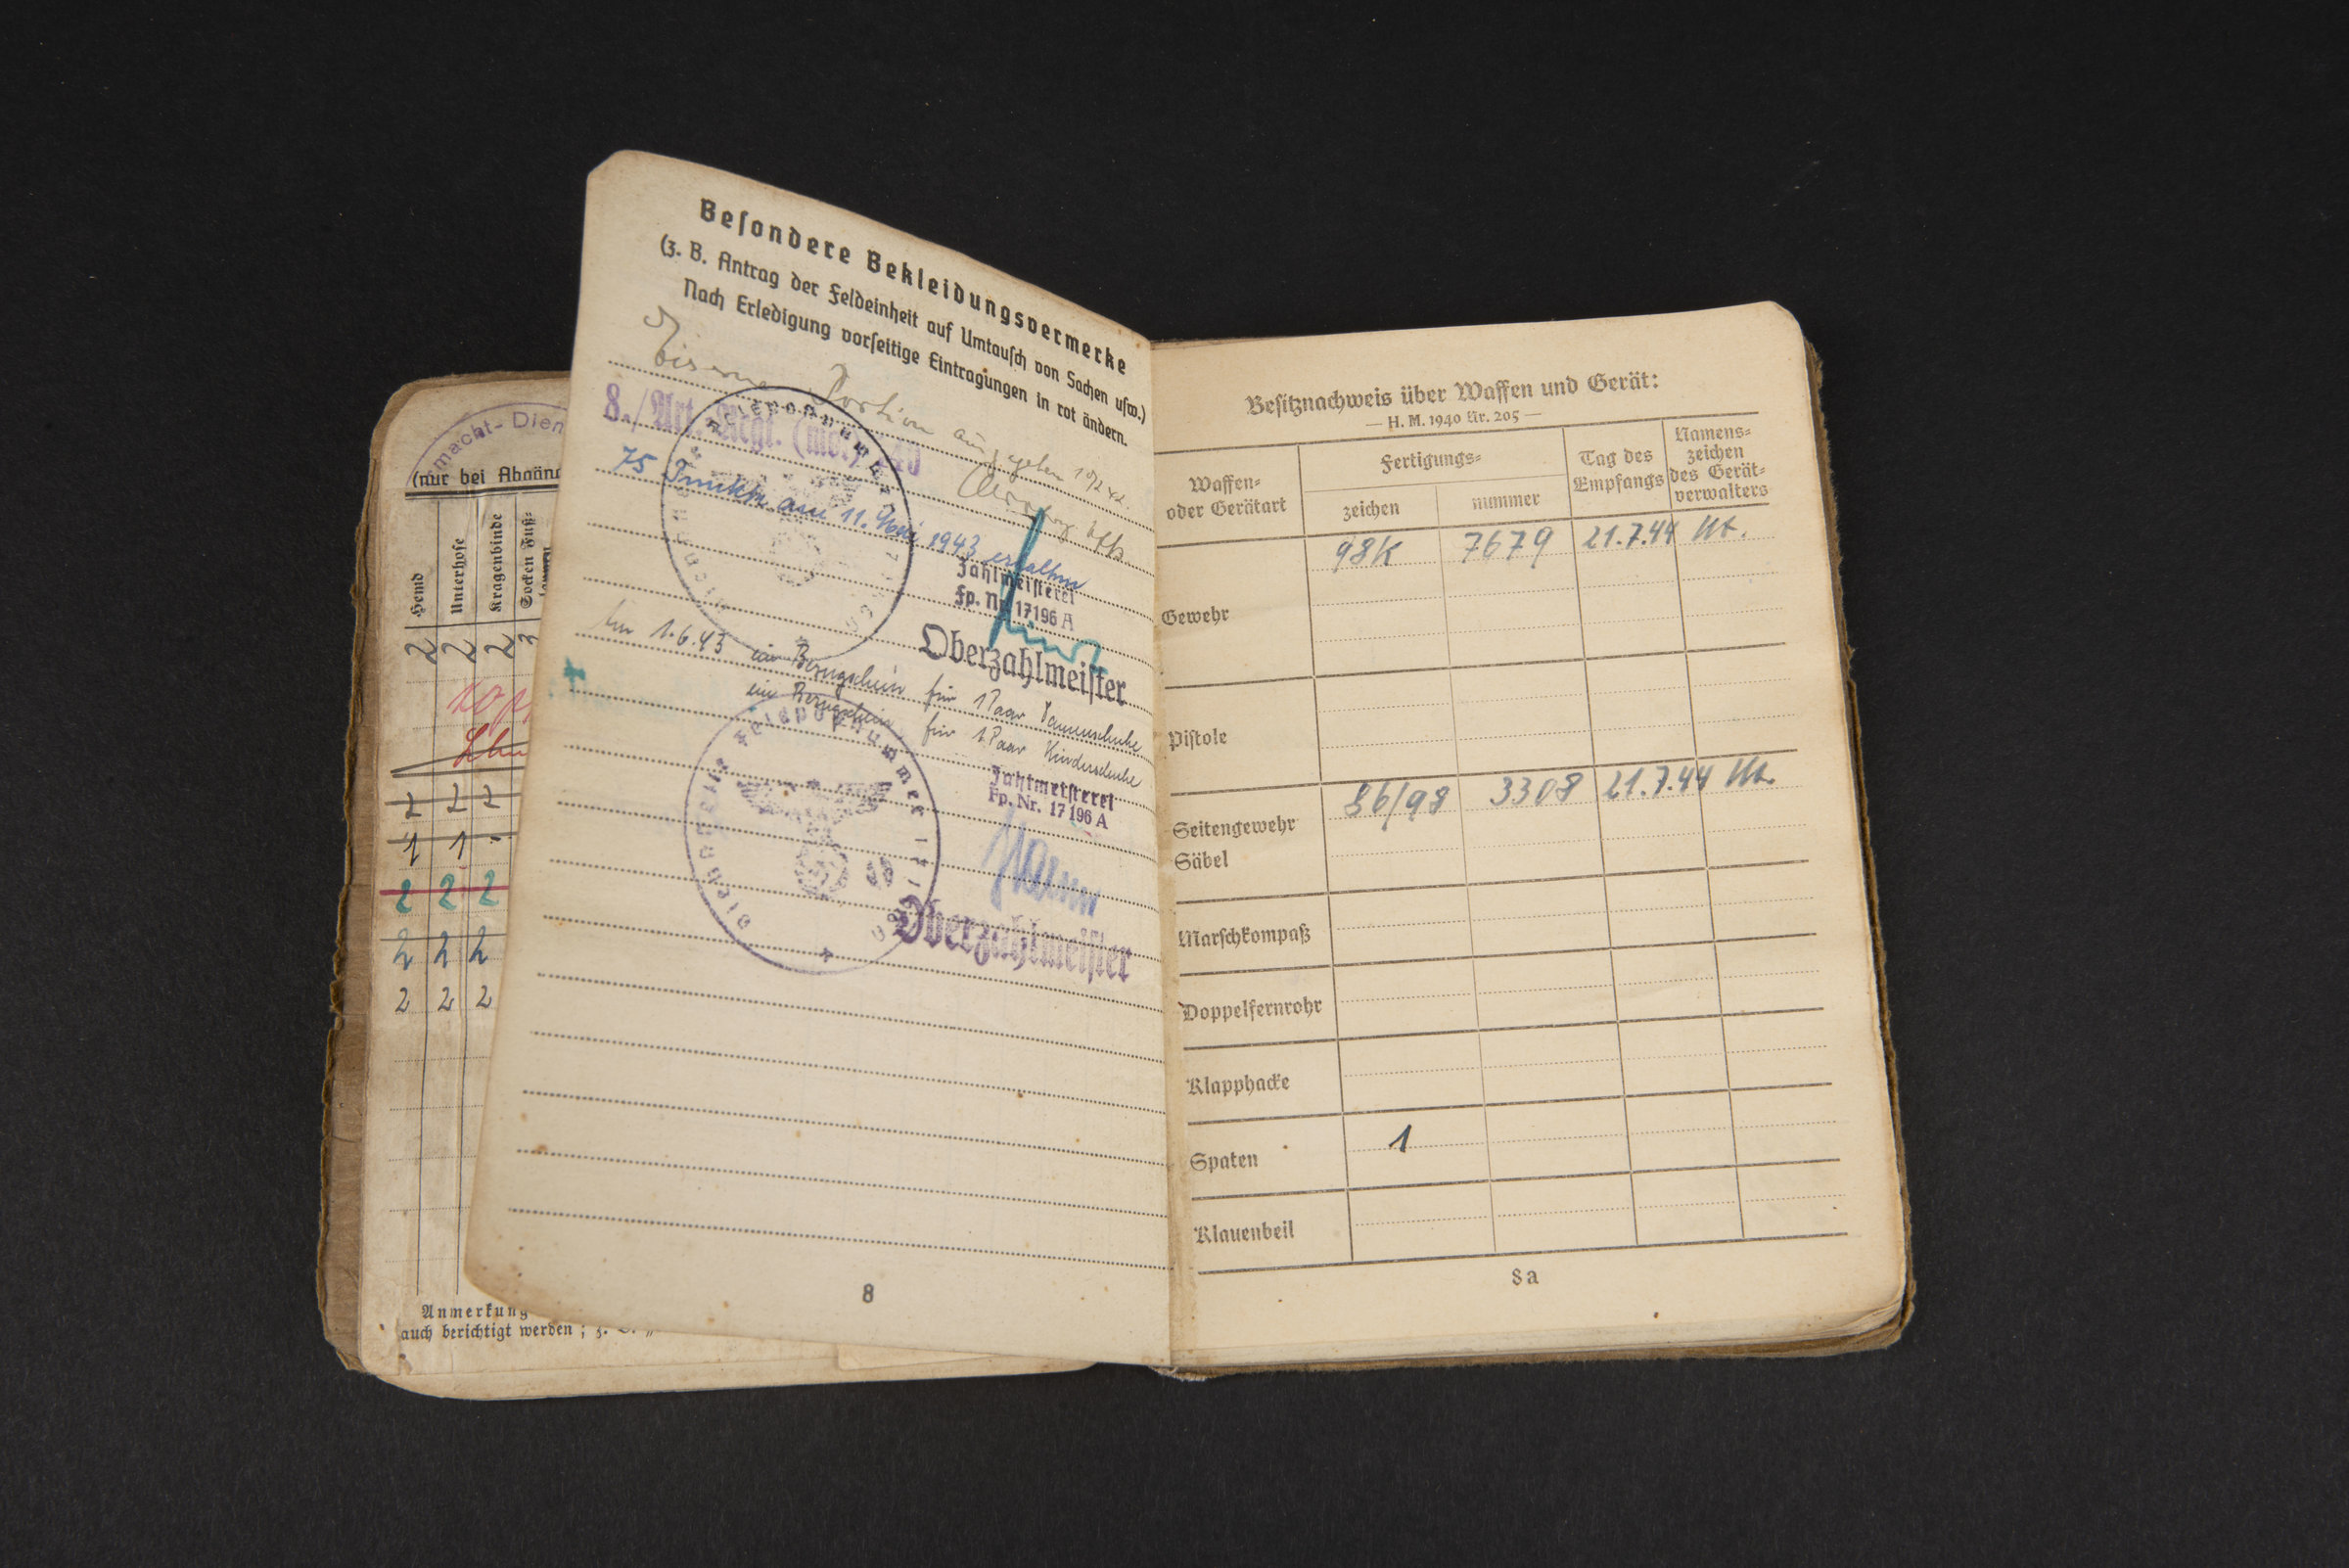 macht-Dien
(nur bei Abgäng
Hemd
Unterhose
Kragenbinde
Socken Fuß-
2 2 2 3
2 2 2
1 1 -
2 2 2
2 2 2
2 2 2
Anmerkung
auch berichtigt werden; z. B. „
Besondere Bekleidungsvermerke
(z. B. Antrag der Feldeinheit auf Umtausch von Sachen usw.)
Nach Erledigung vorseitige Eintragungen in rot ändern.
Eiserne Portion ausgegeben
8./Art. Regt. (mot)
75 Punkte am 11. Mai 1943 erhalten
Zahlmeisterei
Fp. Nr. 17196 A
Oberzahlmeister
Am 1.6.43 ein Bezugschein für 1 Paar Damenschuhe
ein Bezugschein für 1 Paar Kinderschuhe
Dienststelle Feldpostnummer
Zahlmeisterei
Fp. Nr. 17196 A
Oberzahlmeister
8
Besitznachweis über Waffen und Gerät:
— H. M. 1940 Nr. 205 —
Waffen- oder Gerätart
Fertigungs-
zeichen nummer
Tag des Empfangs
Namens-
zeichen
des Gerät-
verwalters
Gewehr 98K 7679 21.7.44
Pistole
Seitengewehr 86/98 3308 21.7.44
Säbel
Marschkompaß
Doppelfernrohr
Klapphacke
Spaten 1
Klauenbeil
8a